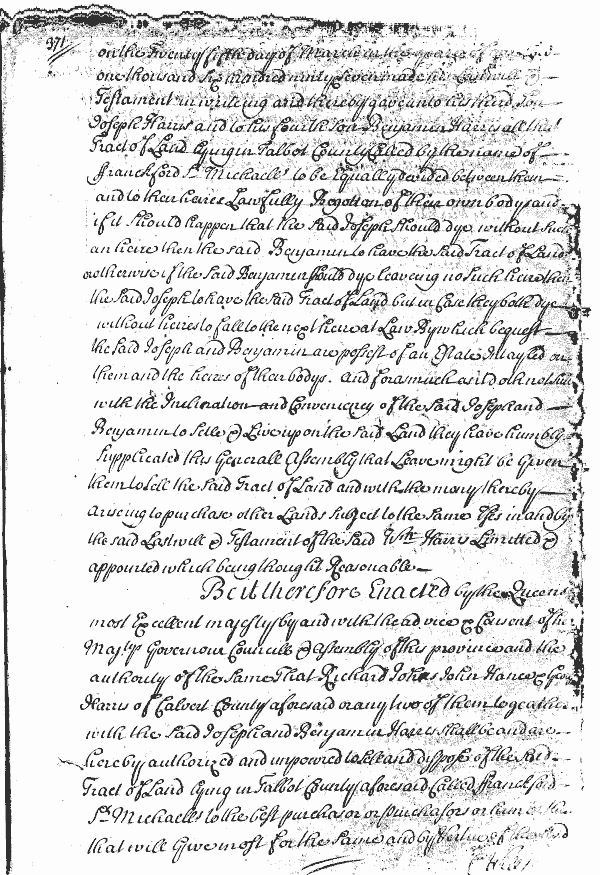 371
on the Twenty fifth day of March in the yeare of
one thousand six hundred ninty seven made his Last will &
Testament in writeing and thereby gave unto his third son
Joseph Harris and to his fourth son Benjamin Harris all that
Tract of Land Lyeing in Talbot County Called by the name of
ffranckford St. Michaells to be Equally devided between them
and to their heires Lawfully Begotten of their own bodys and
if it should happen that the said Joseph should dye without such
an heire then the said Benjamin to have the said Tract of Land
or otherwise if the said Benjamin should dye leaveing no such heire then
the said Joseph to have the said Tract of Land but in Case they both dye
without heires to fall to the next heire at Law By which bequest
the said Joseph and Benjamin are possest of an Estate Intayled on
them and the heires of their bodys. And forasmuch as it doth not suit
with the Inclination and Conveniency of the said Joseph and
Benjamin to settle & Live upon the said Land they have humbly
supplicated this Generall Assembly that Leave might be Given
them to sell the said Tract of Land and with the mony thereby
Ariseing to purchase other Lands subject to the same Uses in and by
the said Last will & Testament of the said Wm. Harris Limitted &
appointed which being thought Reasonable
Be it therefore Enacted by the Queens
most Excellent majesty by and with the advice & Consent of her
Majtys Governour Councill & Assembly of this province and the
authority of the same That Richard Johns John Hance & Geo
Harris of Calvert County aforesaid or any two of them togeather
with the said Joseph and Benjamin Harris shall be and are
hereby authorized and impowred to sell and dispose of the said
Tract of Land lying in Talbot County aforesaid Called ffranckford
St. Michaells to the best purchasor or purchasors or him or them
that will Give most for the same and by Vertue of the said